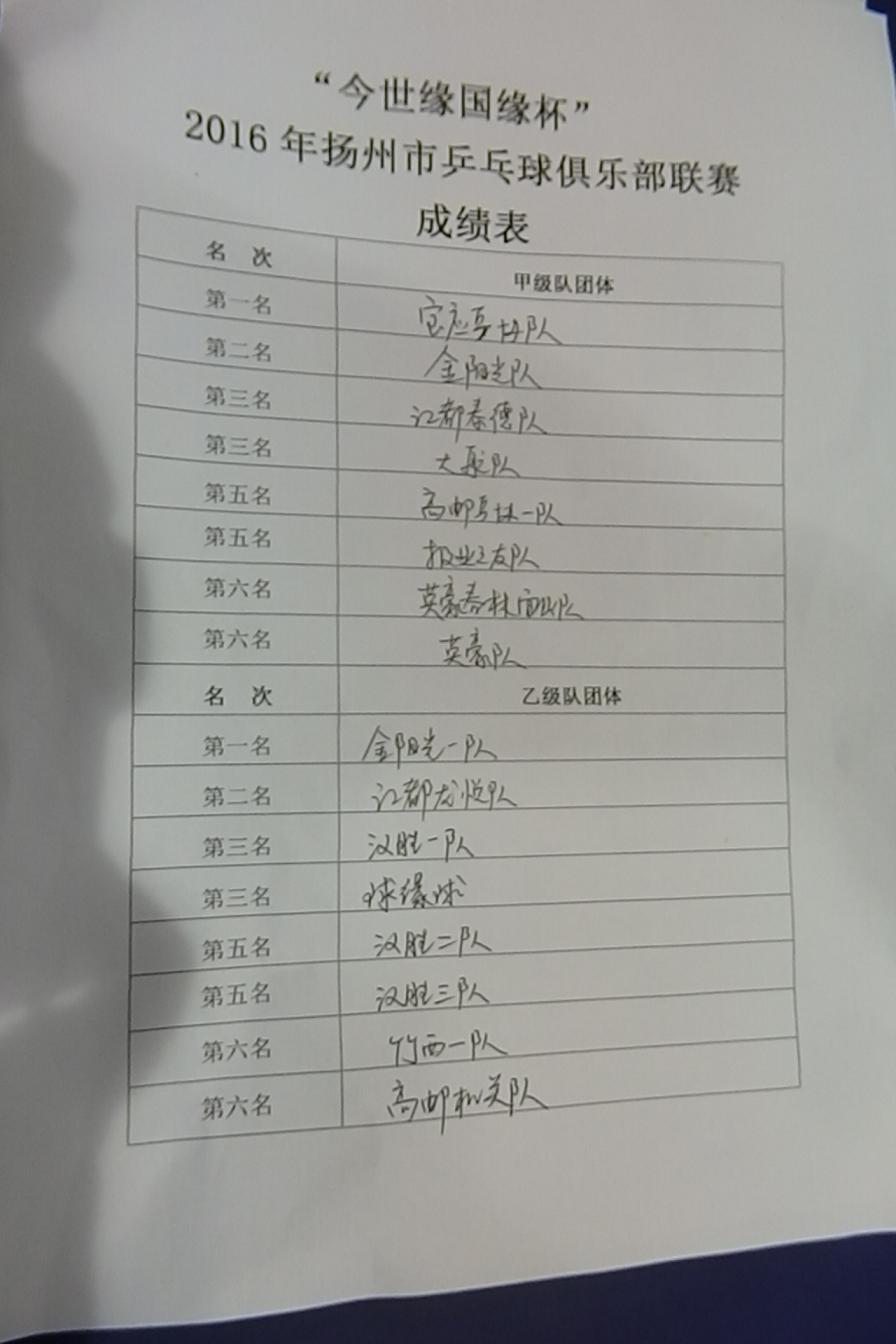 “今世缘国缘杯”
2016 年扬州市乒乓球俱乐部联赛
成绩表
名 次 甲级队团体
第一名 宝应乒协队
第二名 金阳光队
第三名 江都泰德队
第三名 大晟队
第五名 高邮乒协一队
第五名 报业之友队
第六名 英豪春林队
第六名 英豪队
名 次 乙级队团体
第一名 金阳光一队
第二名 江都龙悦队
第三名 汉胜一队
第三名 球缘球
第五名 汉胜二队
第五名 汉胜三队
第六名 竹西一队
第六名 高邮机关队